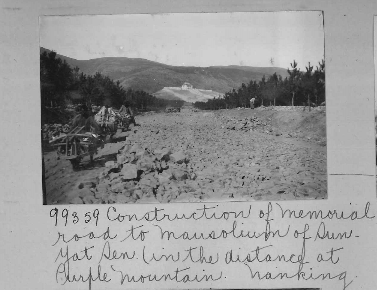 99359 Construction of Memorial
road to Mausoleum of Sun-
Yat Sen. (in the distance at
Purple Mountain. Nanking.